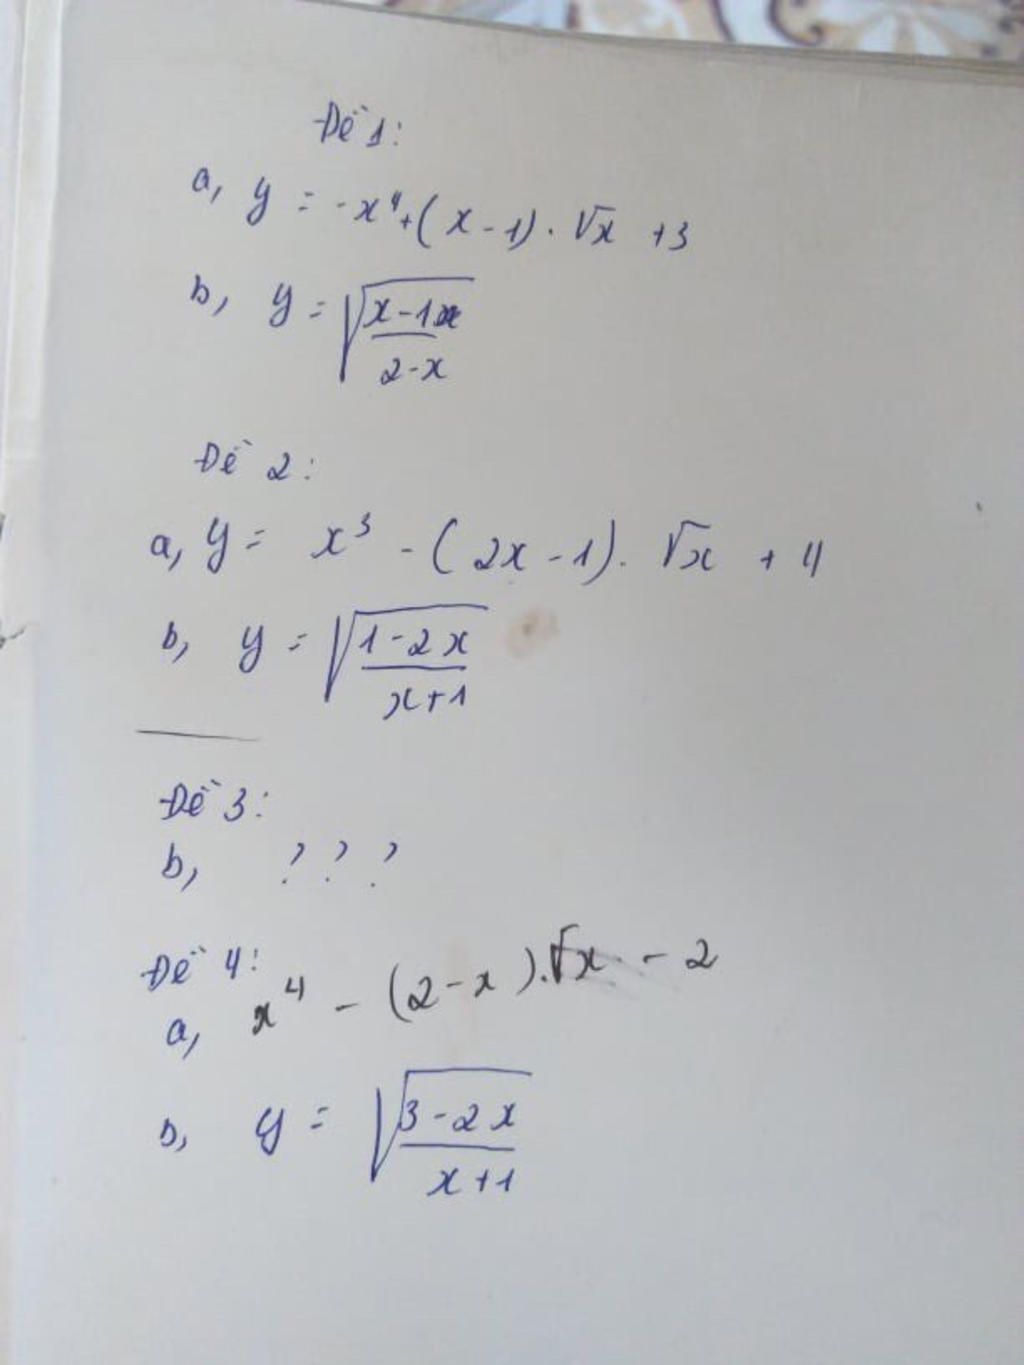 Đề 1:
a, y = -x⁴+(x-1).√x +3
b, y = √((x-1)/(2-x))
Đề 2:
a, y = x³ - (2x-1). √x + 4
b, y = √((1-2x)/(x+1))
Đề 3:
b, ? ? ?
Đề 4:
a, x⁴ - (2-x).√x - 2
b, y = √((3-2x)/(x+1))